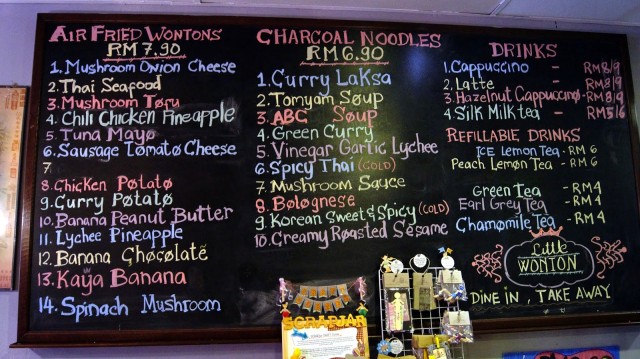 AIR FRIED WONTONS
RM 7.90
1. MUSHROOM ONION CHEESE
2. THAI SEAFOOD
3. MUSHROOM TOFU
4. CHILI CHICKEN PINEAPPLE
5. TUNA MAYO
6. SAUSAGE TOMATO CHEESE
7
8. CHICKEN POTATO
9. CURRY POTATO
10. BANANA PEANUT BUTTER
11. LYCHEE PINEAPPLE
12. BANANA CHOCOLATE
13. KAYA BANANA
14. SPINACH MUSHROOM
CHARCOAL NOODLES
RM 6.90
1. CURRY LAKSA
2. TOMYAM SOUP
3. ABC SOUP
4. GREEN CURRY
5. VINEGAR GARLIC LYCHEE
6. SPICY THAI (COLD)
7. MUSHROOM SAUCE
8. BOLOGNESE
9. KOREAN SWEET & SPICY (COLD)
10. CREAMY ROASTED SESAME
DRINKS
1. CAPPUCCINO - RM 8/9
2. LATTE - RM 8/9
3. HAZELNUT CAPPUCCINO - RM 8/9
4. SILK MILK TEA - RM 5/6
REFILLABLE DRINKS
ICE LEMON TEA - RM 6
PEACH LEMON TEA - RM 6
GREEN TEA - RM 4
EARL GREY TEA - RM 4
CHAMOMILE TEA - RM 4
LITTLE
WONTON
DINE IN, TAKE AWAY
SCRAPJAR